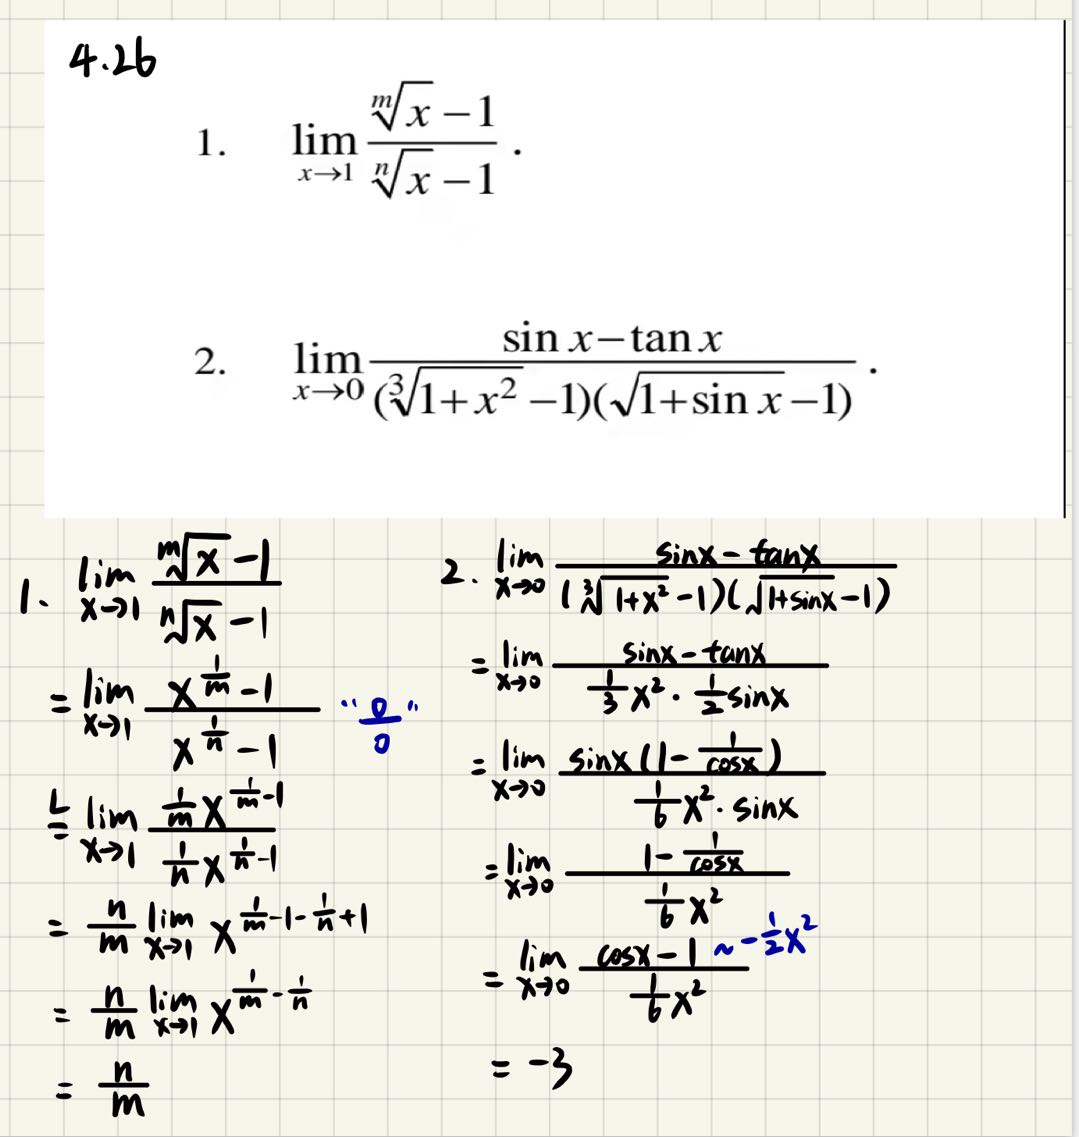 4.26
1. lim_{x→1} (\sqrt[m]{x} − 1)/(\sqrt[n]{x} − 1) .
2. lim_{x→0} (sin x − tan x)/((\sqrt[3]{1+x^2} − 1)(\sqrt{1+sin x} − 1)) .
1. lim_{x→1} (\sqrt[m]{x} − 1)/(\sqrt[n]{x} − 1)
= lim_{x→1} (x^{1/m} − 1)/(x^{1/n} − 1) "0/0"
\overset{L}{=} lim_{x→1} (1/m x^{1/m − 1})/(1/n x^{1/n − 1})
= n/m lim_{x→1} x^{1/m − 1 − 1/n + 1}
= n/m lim_{x→1} x^{1/m − 1/n}
= n/m
2. lim_{x→0} (sinx − tanx)/((\sqrt[3]{1+x^2} − 1)(\sqrt{1+sinx} − 1))
= lim_{x→0} (sinx − tanx)/(1/3 x^2 · 1/2 sinx)
= lim_{x→0} (sinx (1 − 1/cosx))/(1/6 x^2 · sinx)
= lim_{x→0} (1 − 1/cosx)/(1/6 x^2)
= lim_{x→0} (cosx − 1)/(1/6 x^2) ~ −1/2 x^2
= −3